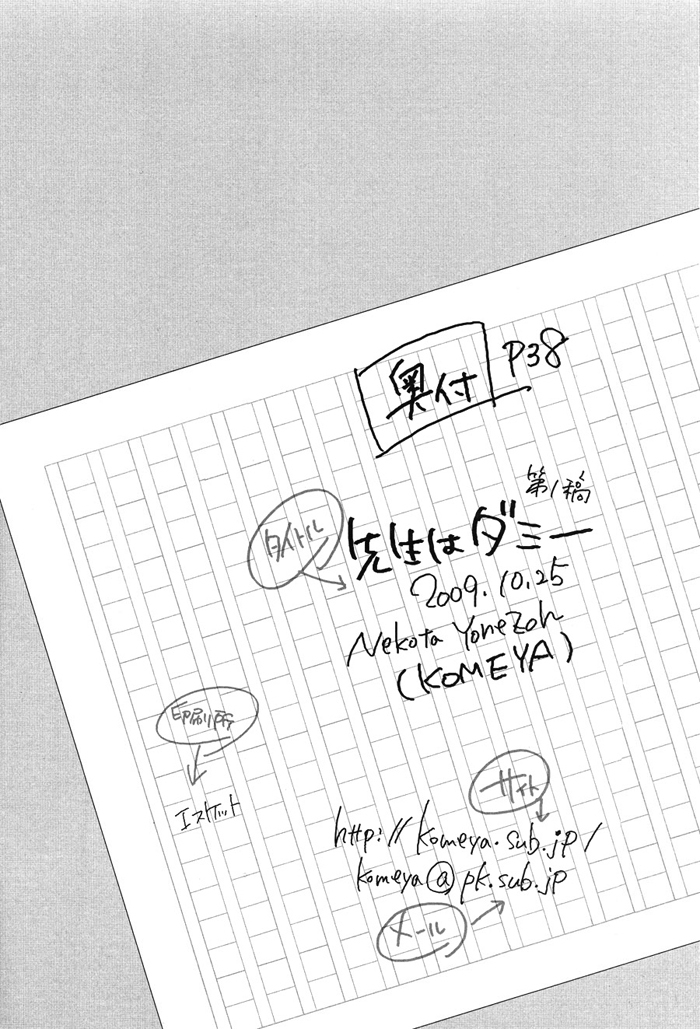 奥付
P38
第1稿
タイトル
先生はダミー
2009.10.25
Nekota Yonezoh
(KOMEYA)
印刷所
エスケット
サイト
http://komeya.sub.jp/
komeya@pk.sub.jp
メール